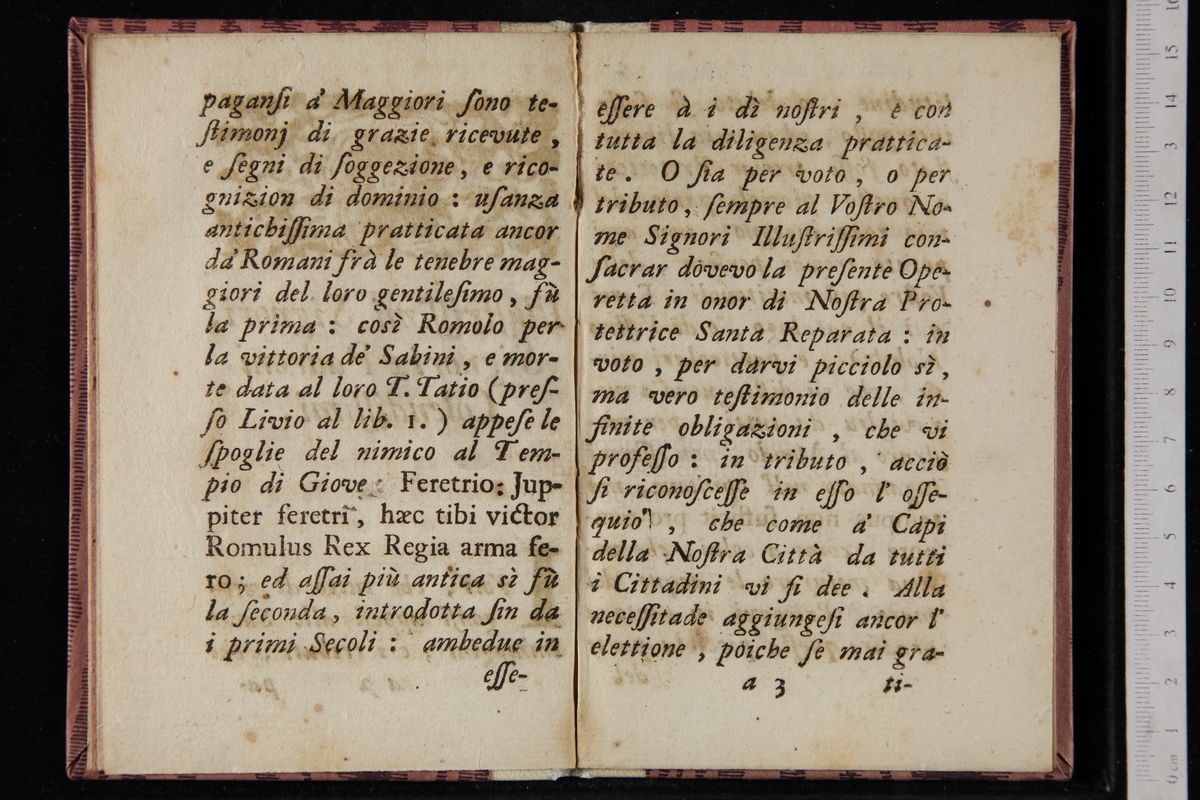 paganſi a' Maggiori ſono te-
ſtimonj di grazie ricevute ,
e ſegni di ſoggezione, e rico-
gnizion di dominio : uſanza
antichiſſima pratticata ancor
da' Romani frà le tenebre mag-
giori del loro gentileſimo, fù
la prima : così Romolo per
la vittoria de' Sabini , e mor-
te data al loro T. Tatio (preſ-
ſo Livio al lib. 1. ) appeſe le
ſpoglie del nimico al Tem-
pio di Giove Feretrio: Jup-
piter feretri , hæc tibi victor
Romulus Rex Regia arma fe-
ro; ed aſſai più antica sì fù
la ſeconda, introdotta ſin da
i primi Secoli : ambedue in
eſſe-
eſſere à i dì noſtri , e con
tutta la diligenza prattica-
te . O ſia per voto , o per
tributo, ſempre al Voſtro No-
me Signori Illuſtriſſimi con-
ſacrar dovevo la preſente Ope-
retta in onor di Noſtra Pro-
tettrice Santa Reparata : in
voto , per darvi picciolo sì ,
ma vero teſtimonio delle in-
finite obligazioni , che vi
profeſſo : in tributo , acciò
ſi riconoſceſſe in eſſo l' oſſe-
quio , che come a' Capi
della Noſtra Città da tutti
i Cittadini vi ſi dee . Alla
neceſſitade aggiungeſi ancor l'
elettione , poiche ſe mai gra-
a 3 ti-